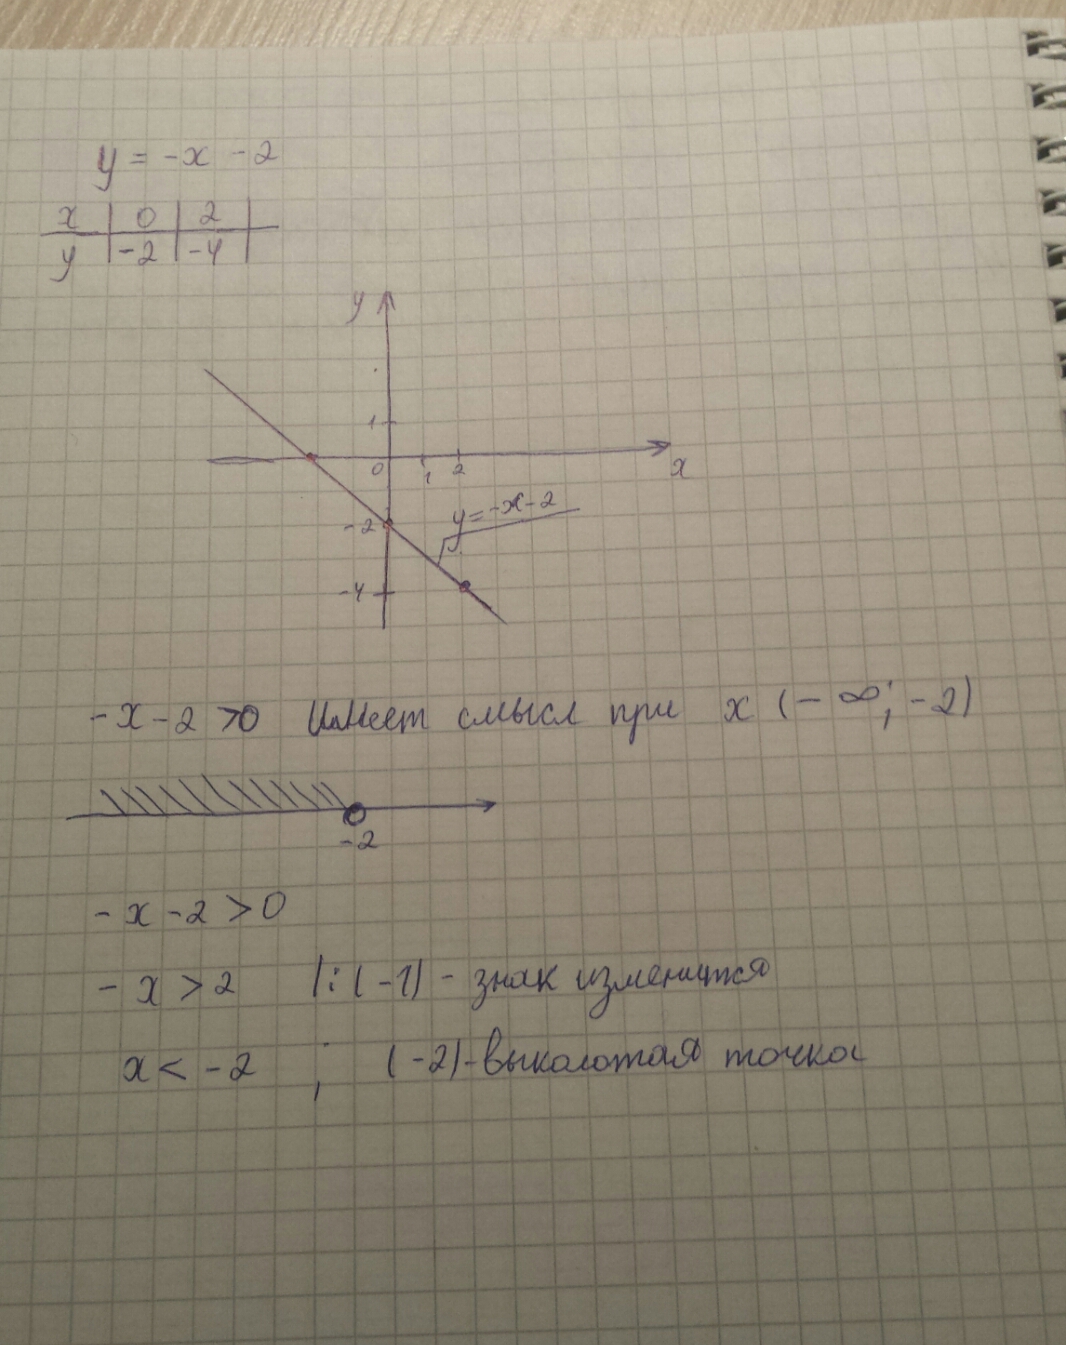 y = -x - 2
x | 0 | 2 |
y | -2 | -4 |
y
1
0 1 2 x
-2
y=-x-2
-4
-x-2>0 Имеет смысл при x (-∞; -2)
-2
-x-2>0
-x>2 |:(-1) - знак изменится
x<-2 ; (-2)-выколотая точка